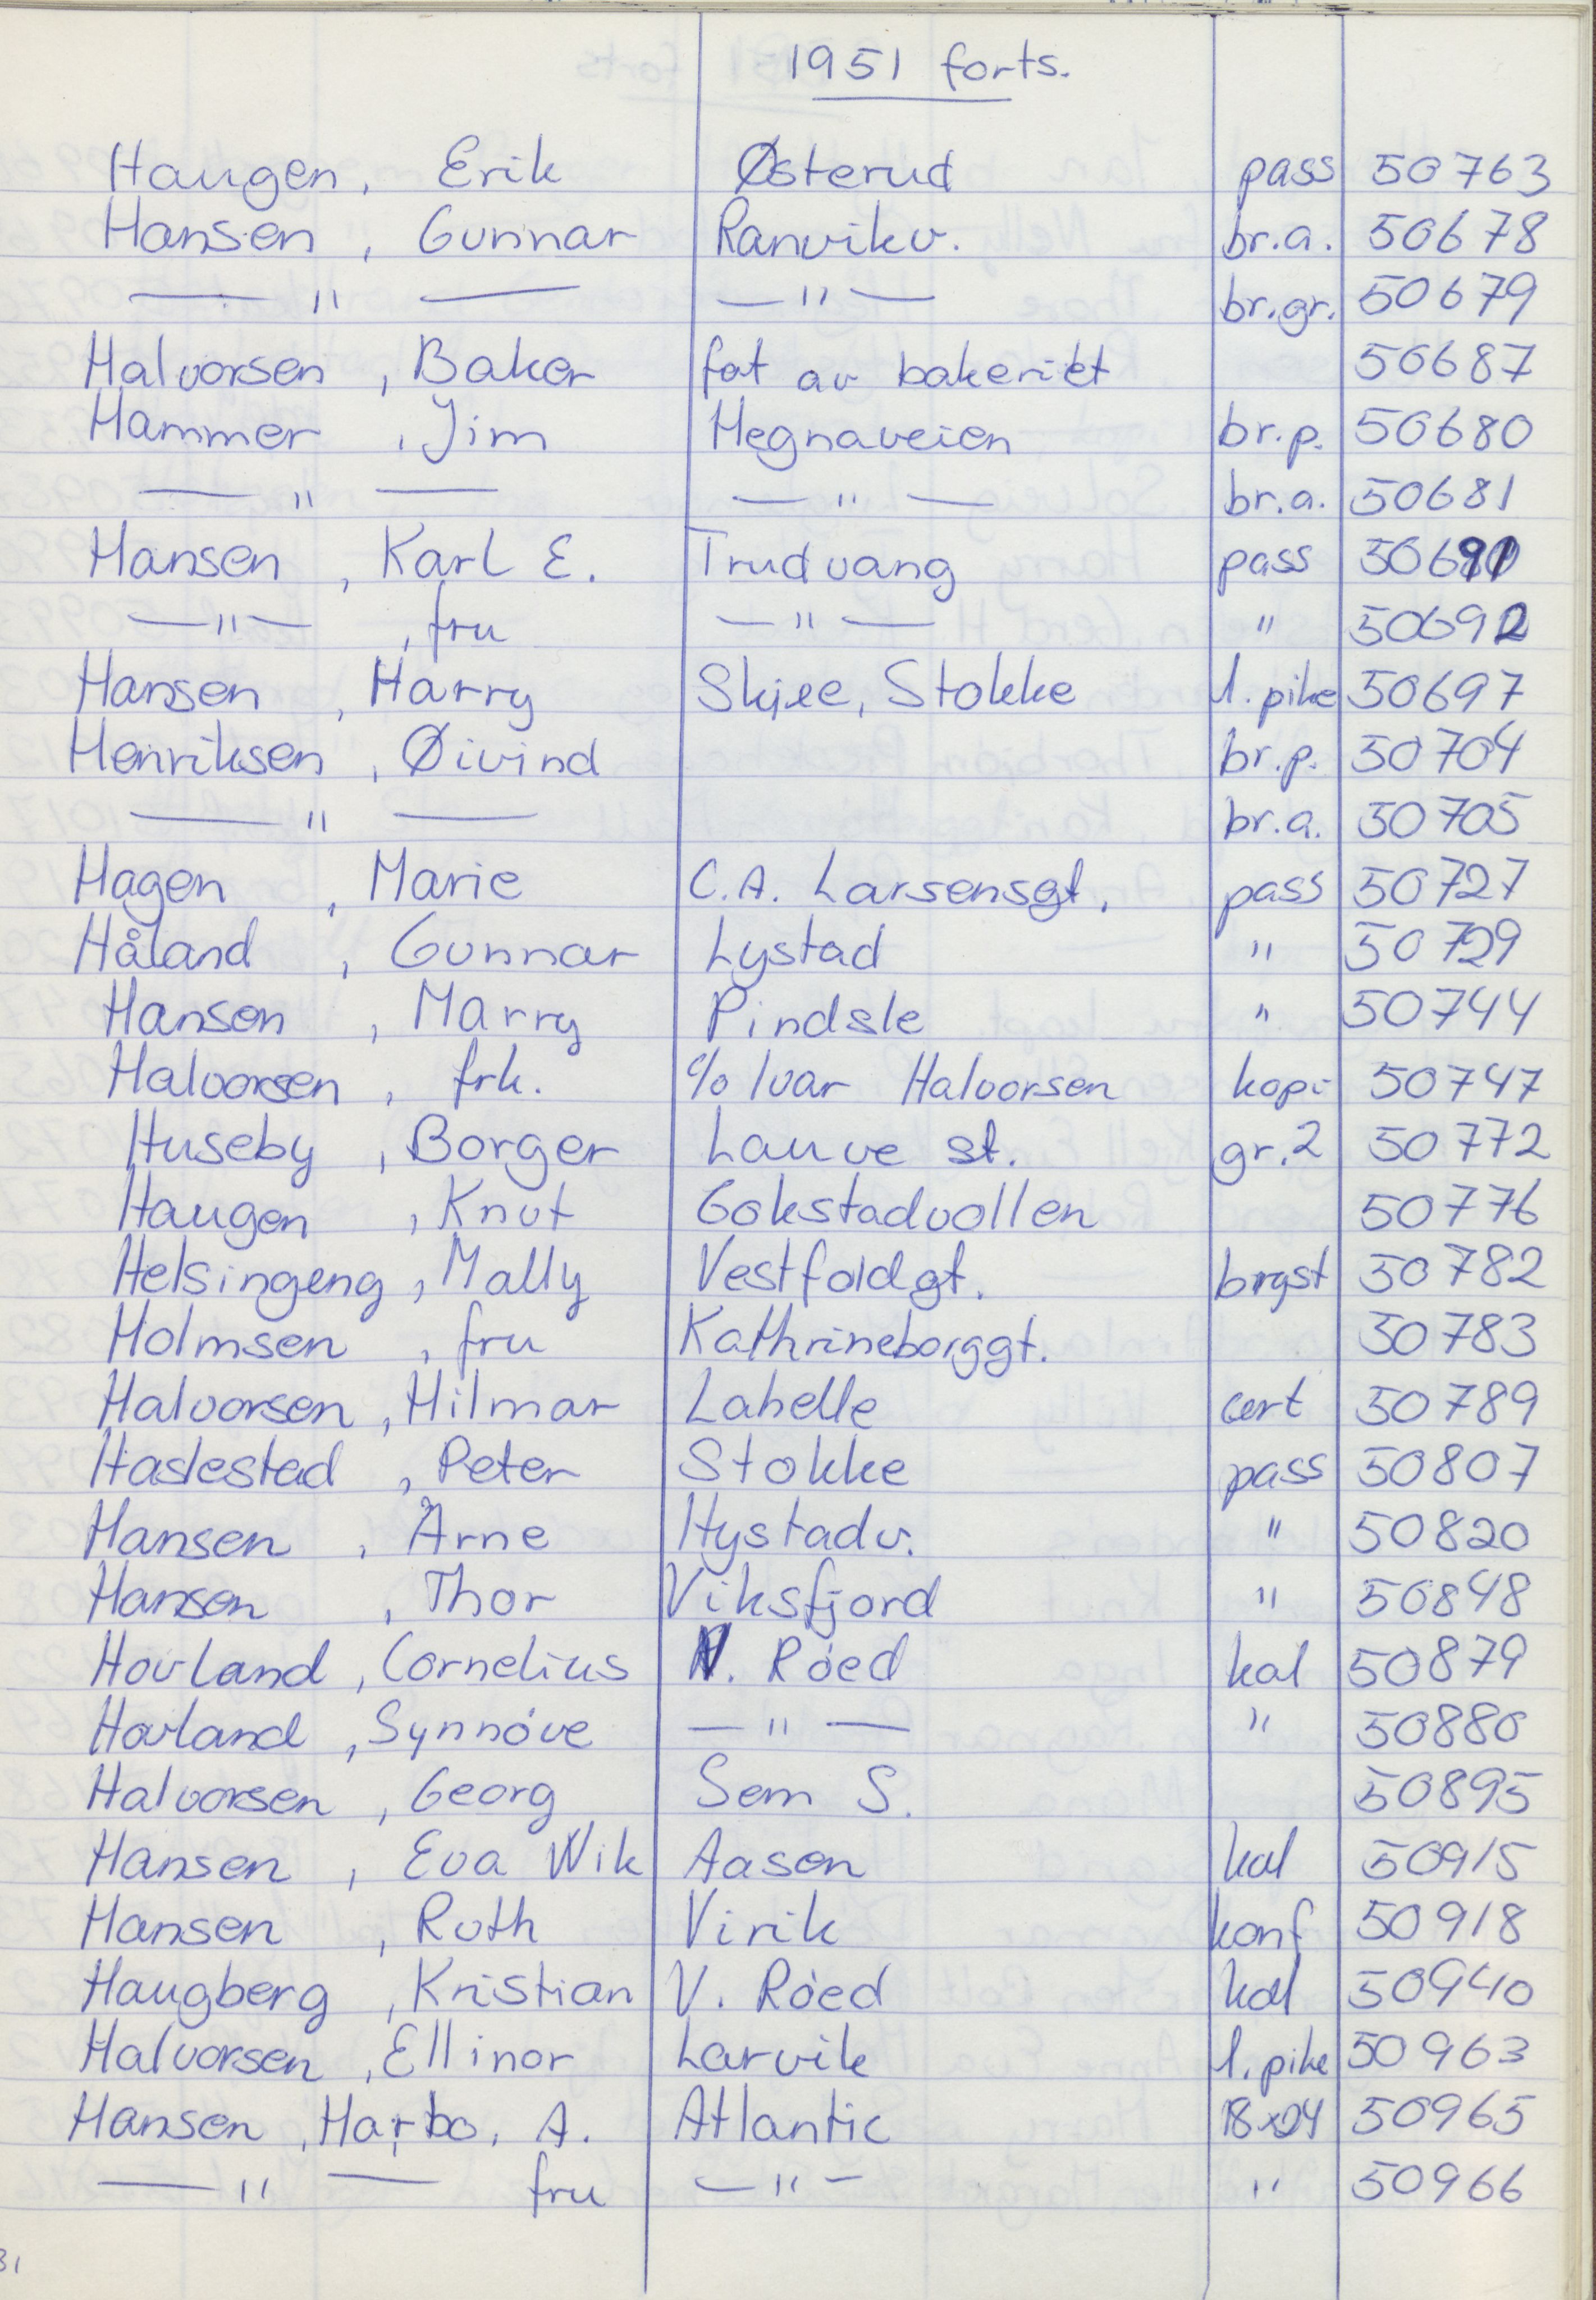 1951 forts.
Haugen, Erik Østerud pass 50763
Hansen, Gunnar Ranvikv. br.a. 50678
— " — — " — br.gr. 50679
Halvorsen, Baker fot av bakeriet 50687
Hammer, Jim Hegnaveien br.p. 50680
— " — — " — br.a. 50681
Hansen, Karl E. Trudvang pass 50691
— " —, fru — " — " 50692
Hansen, Harry Skjee, Stokke l. pike 50697
Henriksen, Øivind br.p. 50704
— " — br.a. 50705
Hagen, Marie C.A. Larsensgt. pass 50727
Håland, Gunnar Lystad " 50729
Hansen, Marry Pindsle " 50744
Halvorsen, frk. c/o Ivar Halvorsen kopi 50747
Huseby, Borger Lauve st. gr.2 50772
Haugen, Knut Gokstadvollen 50776
Helsingeng, Mally Vestfoldgt. bryst 50782
Holmsen, fru Kathrineborggt. 50783
Halvorsen, Hilmar Labelle cert 50789
Haslestad, Peter Stokke pass 50807
Hansen, Arne Hystadv. " 50820
Hansen, Thor Viksfjord " 50848
Hovland, Cornelius N. Røed kal 50879
Hovland, Synnøve — " — " 50880
Halvorsen, Georg Sem S. 50895
Hansen, Eva Wik Aasen kal 50915
Hansen, Ruth Virik konf 50918
Haugberg, Kristian V. Røed kal 50940
Halvorsen, Ellinor Larvik l. pike 50963
Hansen, Harbo, A. Atlantic 18x24 50965
— " — fru — " — " 50966
31